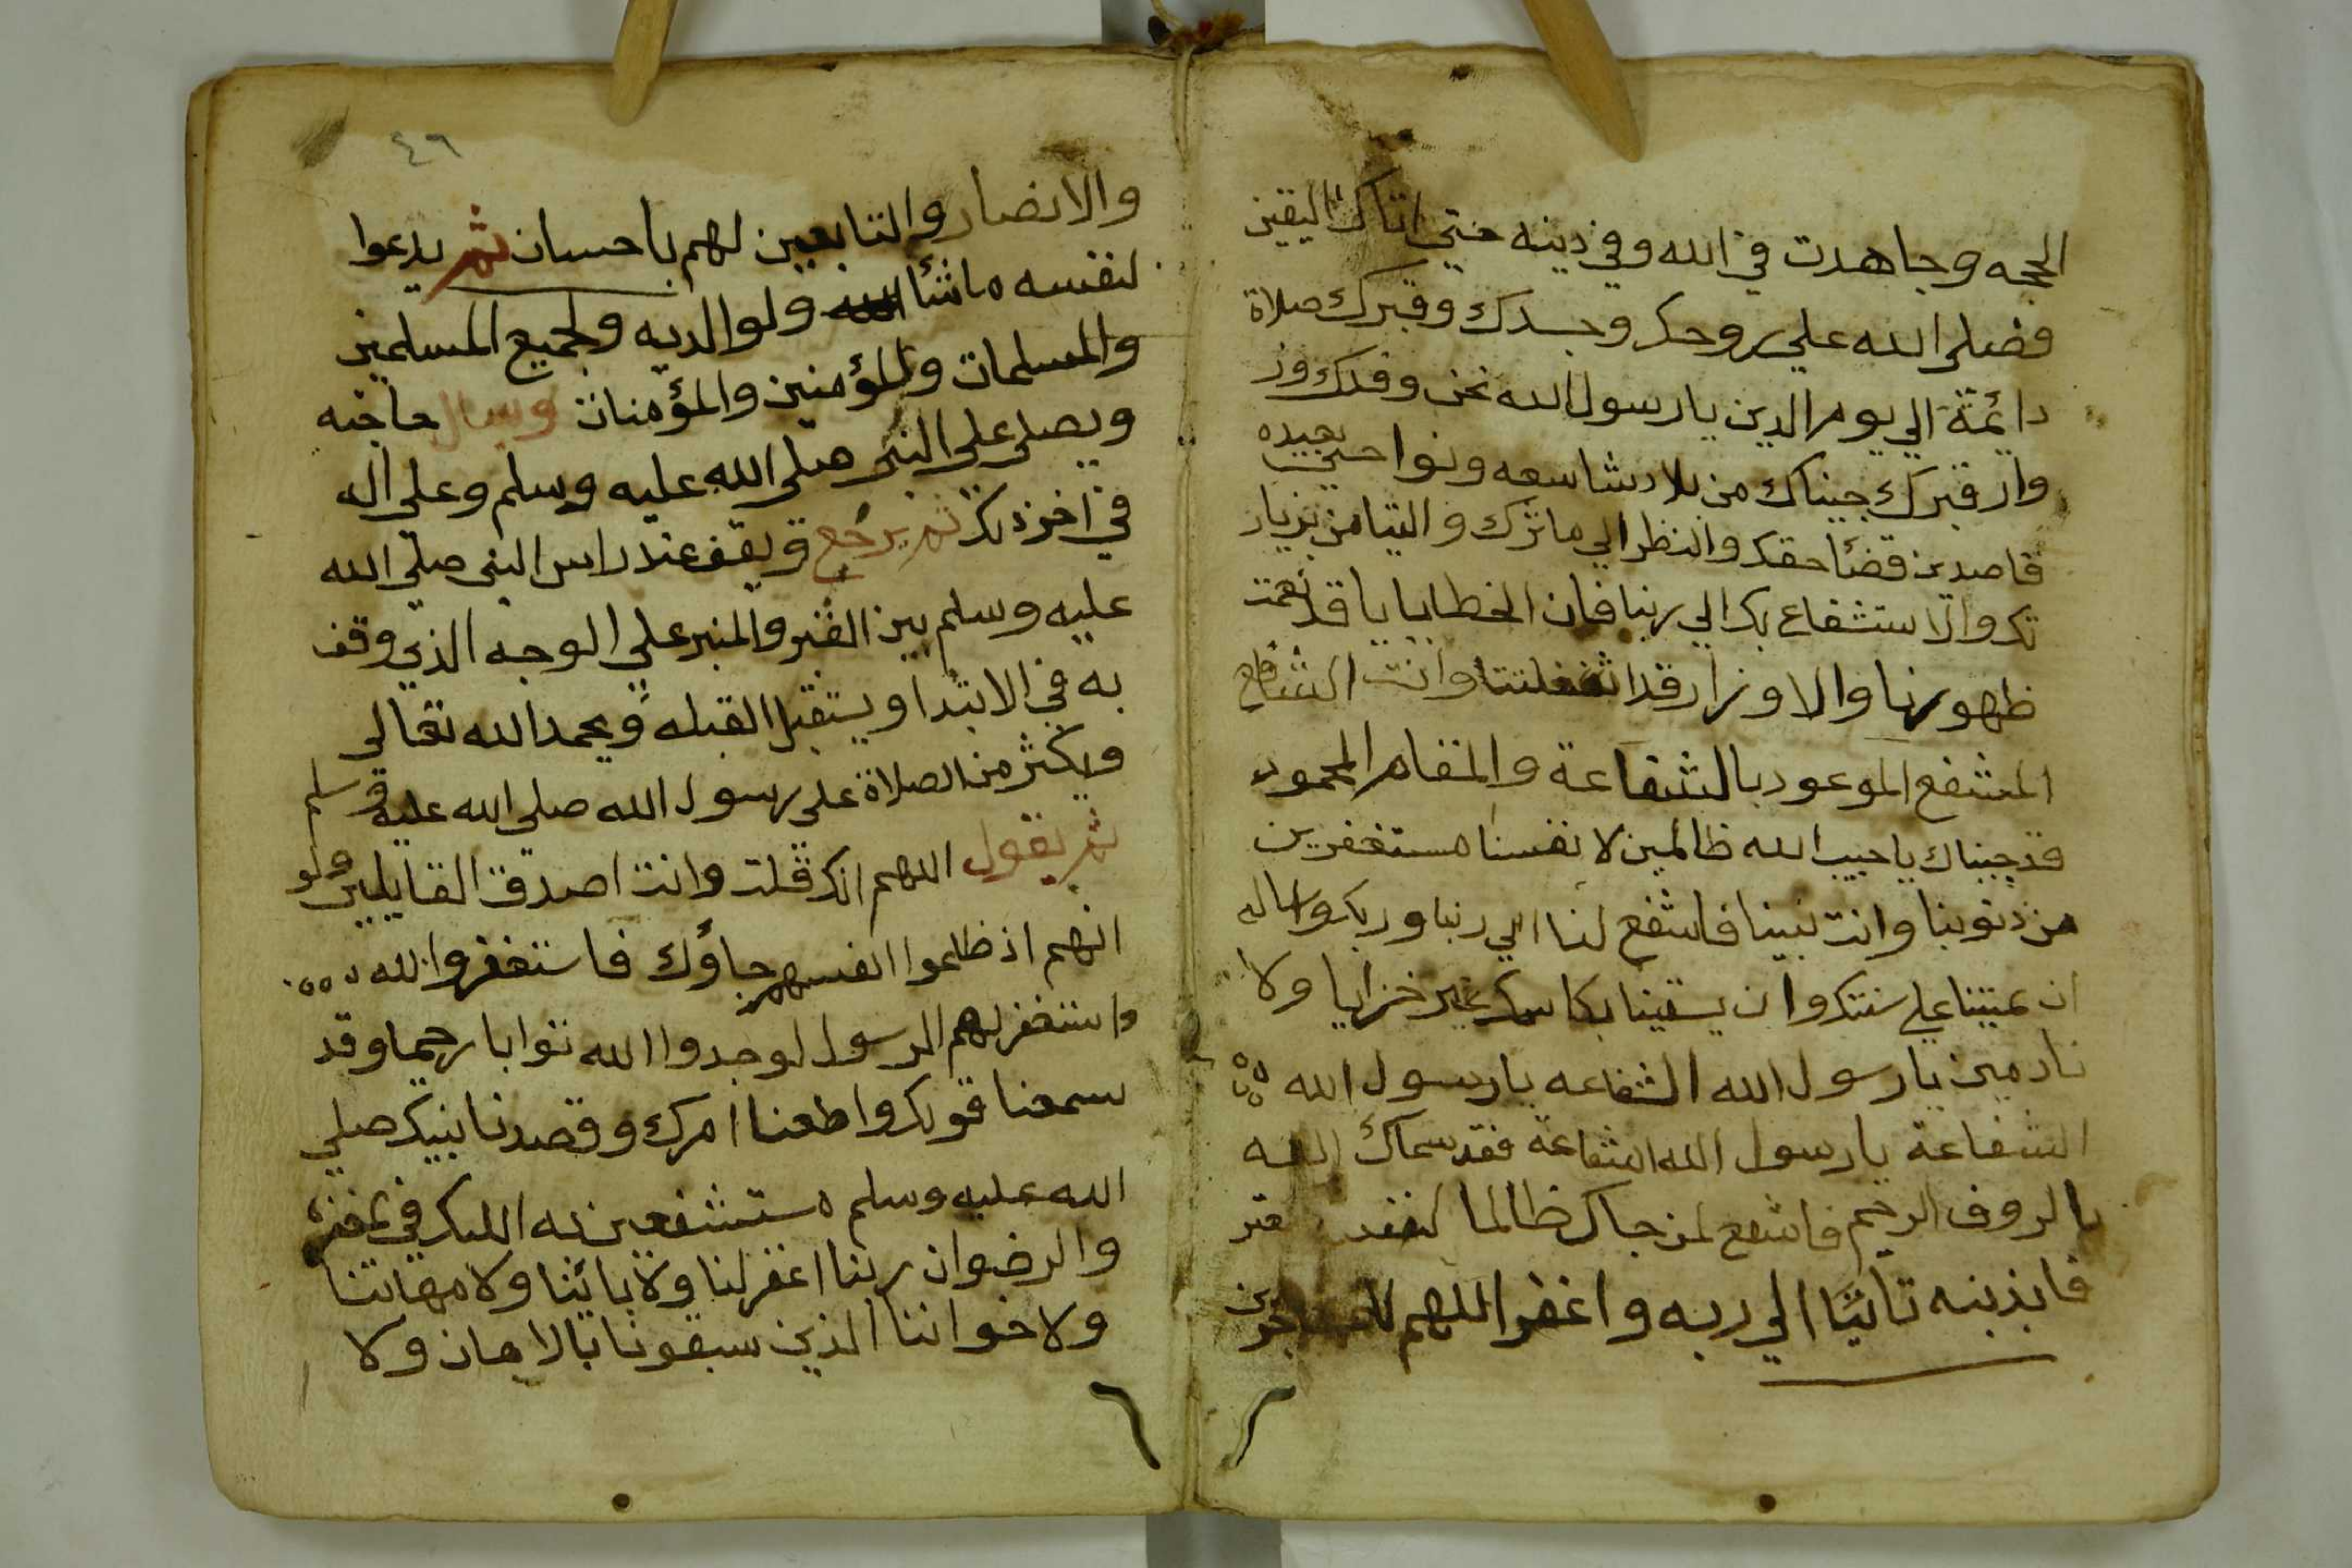 الحجه وجاهدت في الله وفي دينه حتي اتاك اليقين
فصلى الله علي روحك وجسدك وقبرك صلاة
دائمة الي يوم الدين يا رسول الله نحن وفدك وز
وار قبرك جيناك من بلاد شاسعه ونواحي بعيده
قاصدين قضئا حقك والنظر الي ماثرك والتيامن بزيار
تك والاستشفاع بك الي ربنا فان الخطايا يا قد
ظهورنا والاوزار قد اثقلتنا وانت الشافع
المشفع الموعود بالشفاعة والمقام المحمود
قد جيناك يا حبيب الله ظالمين لانفسنا مستغفرين
من ذنوبنا وانت نبينا فاشفع لنا الي ربنا وربك واساله
ان يميتنا علي سنتك وان يسقينا بكاسك غير خزايا ولا
نادمين يا رسول الله الشفاعه يا رسول الله
الشفاعة يا رسول الله الشفاعة فقد سماك الله
بالروف الرحيم فاشفع لمن جاك ظالما لنفسه معتر
فا بذنبه تائبا الي ربه واغفر اللهم للمهاجرين
٤٦
والانصار والتابعين لهم باحسان ثم يدعوا
لنفسه ماشأ ولوالديه ولجميع المسلمين
والمسلمات والمؤمنين والمؤمنات ويسال حاجته
ويصلى على النبى صلى الله عليه وسلم وعلى اله
في اخر ذلك ثم يرجع ويقف عند راس النبى صلي الله
عليه وسلم بين القبر والمنبر علي الوجه الذي وقف
به في الابتدا ويستقبل القبله ويحمد الله تعالى
ويكثر من الصلاة على رسول الله صلي الله عليه وسلم
ثم يقول اللهم انك قلت وانت اصدق القايلين ولو
انهم اذ ظلموا انفسهم جاؤك فاستغفروا الله
واستغفر لهم الرسول لوجدوا الله توابا رحيما وقد
سمعنا قولك واطعنا امرك وقصدنا نبيك صلي
الله عليه وسلم مستشفعين به اليك في
والرضوان ربنا اغفر لنا ولابائنا ولامهاتنا
ولاخواننا الذين سبقونا بالايمان ولا